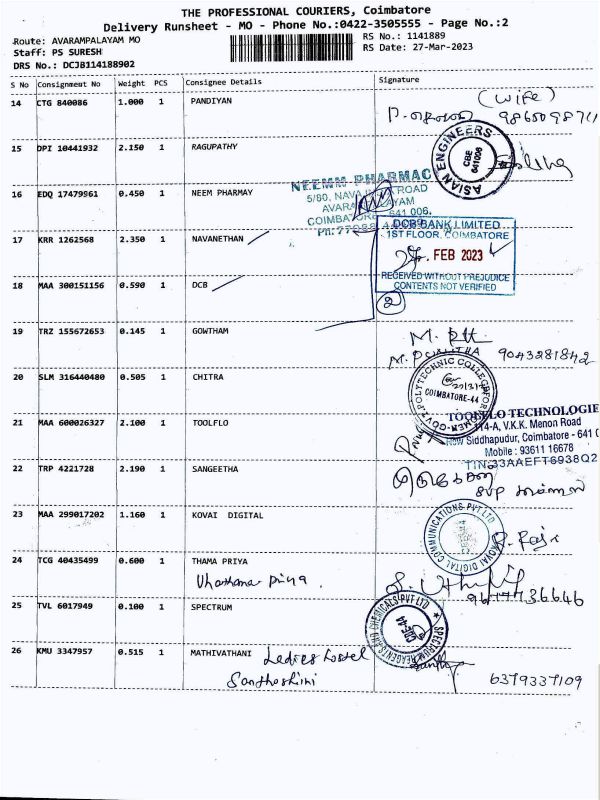 THE PROFESSIONAL COURIERS, Coimbatore
Delivery Runsheet - MO - Phone No.:0422-3505555 - Page No.:2
Route: AVARAMPALAYAM MO
RS No.: 1141889
Staff: PS SURESH
RS Date: 27-Mar-2023
DRS No.: DCJB114188902
S No Consignment No Weight PCS Consignee Details Signature
14 CTG 840086 1.000 1 PANDIYAN
(Wife)
15 DPI 10441932 2.150 1 RAGUPATHY
ASIAN ENGINEERS
CBE
641006
16 EDQ 17479961 0.450 1 NEEM PHARMAY
NEEMM PHARMAC
5/60, ROAD
COIMBATORE 641 006.
17 KRR 1262568 2.350 1 NAVANETHAN
DCB BANK LIMITED
1ST FLOOR, COIMBATORE
FEB 2023
RECEIVED WITHOUT PREJUDICE
CONTENTS NOT VERIFIED
18 MAA 300151156 0.590 1 DCB
2
19 TRZ 155672653 0.145 1 GOWTHAM
9043281842
20 SLM 316440480 0.505 1 CHITRA
GOVT. POLYTECHNIC COLLEGE FOR WOMEN
COIMBATORE-44
21 MAA 600026327 2.100 1 TOOLFLO
TOOLFLO TECHNOLOGIE
114-A, V.K.K. Menon Road
Siddhapudur, Coimbatore - 641 0
Mobile : 93611 16678
TIN 33AAEFT6938Q2
22 TRP 4221728 2.190 1 SANGEETHA
23 MAA 299017202 1.160 1 KOVAI DIGITAL
KOVAI DIGITAL COMMUNICATIONS PVT LTD
24 TCG 40435499 0.600 1 THAMA PRIYA
25 TVL 6017949 0.100 1 SPECTRUM
SPECTRUM REAGENTS AND CHEMICALS PVT LTD
CBE-44
26 KMU 3347957 0.515 1 MATHIVATHANI Ladies hostel
Santhoshini
6379337109